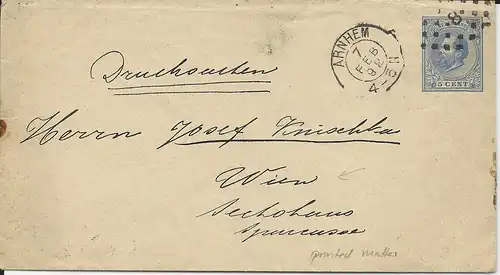 ARNHEM
7 FEB 88
4-5N
8
5 CENT
Drucksachen
Herrn Josef Knischka
Wien
Sechshaus
Sparcasse
printed matter